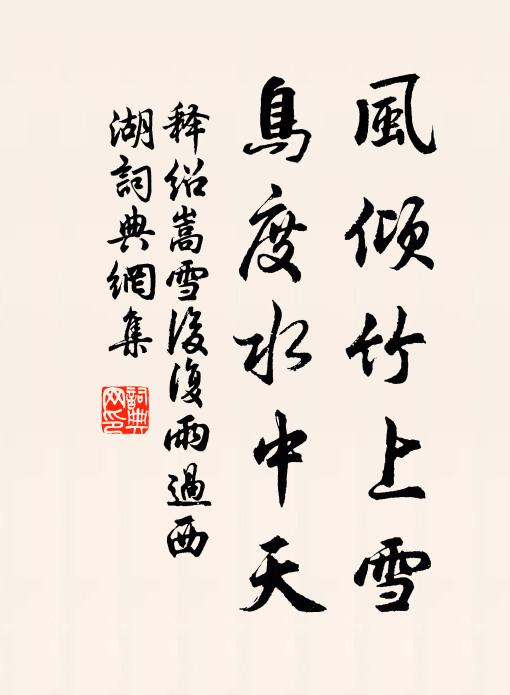 風傾竹上雪
鳥度水中天
释绍嵩雪後復雨過西
湖詞典網集
詞典
网印